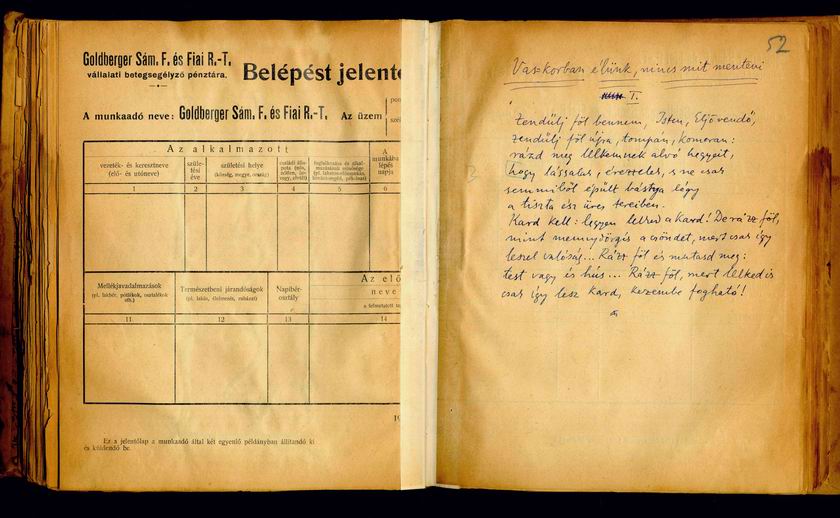 Goldberger Sám. F. és Fiai R.-T.
vállalati betegsegélyző pénztára.
Belépést jelent
A munkaadó neve: Goldberger Sám. F. és Fiai R.-T. Az üzem
Az alkalmazott
vezeték- és keresztneve
(elő- és utóneve)
szüle-
tési
éve
születési helye
(község, megye, ország)
A
munkába
lépés
napja
1 2 3 4 5 6
Az elő
neve
Mellékjavadalmazások
(pl. lakbér, pótlékok, osztalékok
stb.)
Természetbeni járandóságok
(pl. lakás, élelmezés, ruházat)
Napibér-
osztály
11 12 13 14
19
Ez a jelentőlap a munkaadó által két egyenlő példányban állítandó ki
és küldendő be.
52
Vaskorban élünk, nincs mit menteni
I.
Zendülj föl bennem, Isten, Eljövendő,
zendülj föl újra, tompán, komoran:
rázd meg lelkemnek alvó hegyeit,
hogy lássalak, érezzelek, s ne csak
semmiből épült bástya légy
a tiszta ész üres tereiben.
Kard kell: legyen lelked a Kard! De rázz föl,
mint mennydörgés a csöndet, mert csak így
leszel valóság... Rázz föl és mutasd meg:
test vagy és hús... Rázz föl, mert lelked is
csak így lesz Kard, kezembe fogható!